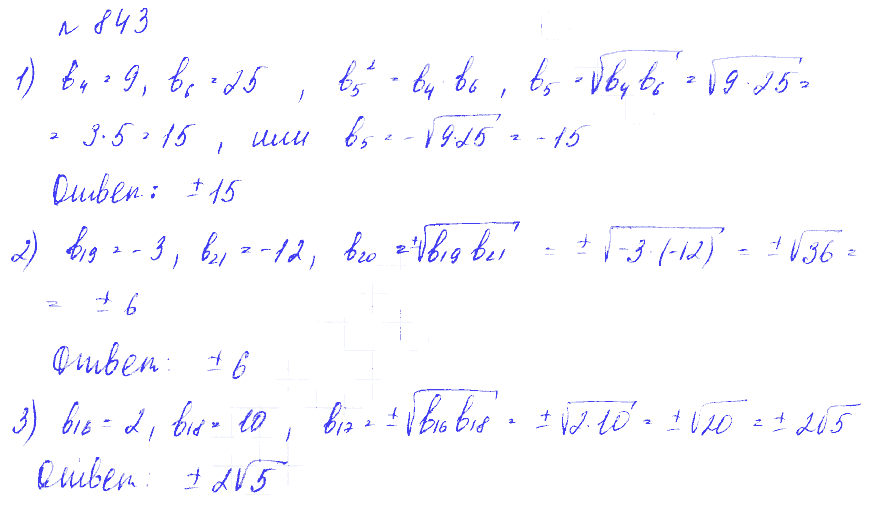 № 843
1) b₄ = 9, b₆ = 25 , b₅² = b₄ · b₆ , b₅ = √(b₄ b₆) = √(9 · 25) =
= 3·5 = 15 , или b₅ = -√(9·25) = -15
Ответ: ±15
2) b₁₉ = -3, b₂₁ = -12, b₂₀ = ±√(b₁₉ b₂₁) = ±√(-3·(-12)) = ±√36 =
= ± 6
Ответ: ± 6
3) b₁₆ = 2, b₁₈ = 10 , b₁₇ = ±√(b₁₆ b₁₈) = ±√(2·10) = ±√20 = ± 2√5
Ответ: ± 2√5